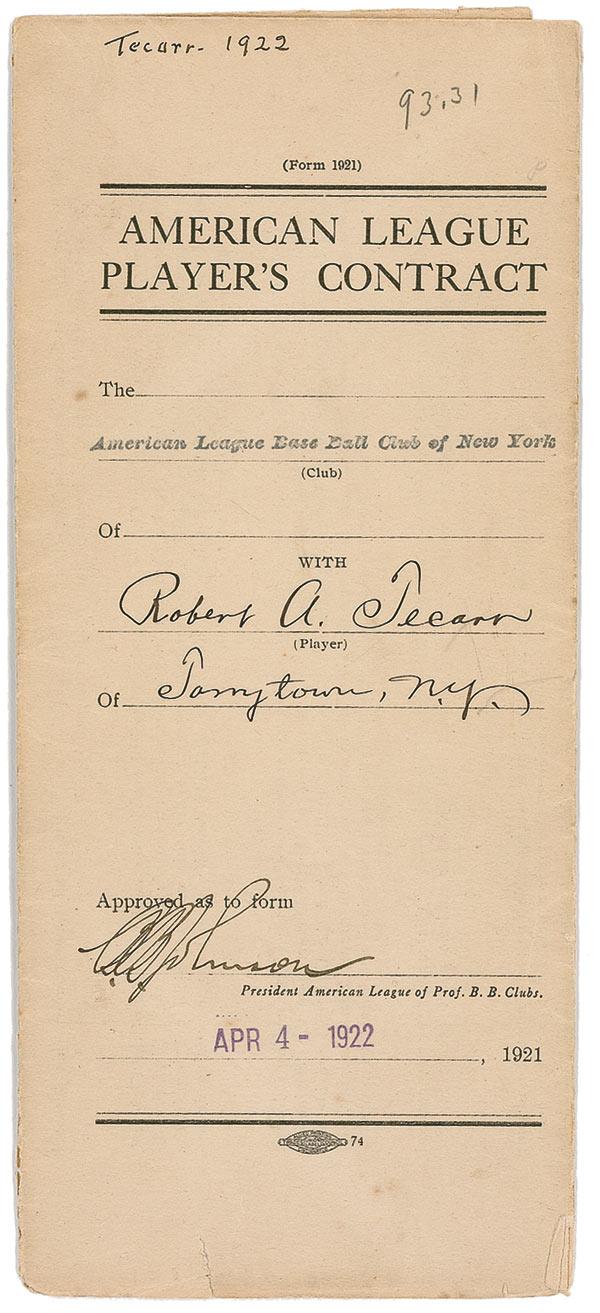 Tecarr- 1922
93.31
(Form 1921)
AMERICAN LEAGUE
PLAYER'S CONTRACT
The
American League Base Ball Club of New York
(Club)
Of
WITH
Robert A. Tecarr
(Player)
Of Tarrytown, N.Y.
Approved as to form
B Johnson
President American League of Prof. B. B. Clubs.
APR 4 - 1922
, 1921
74